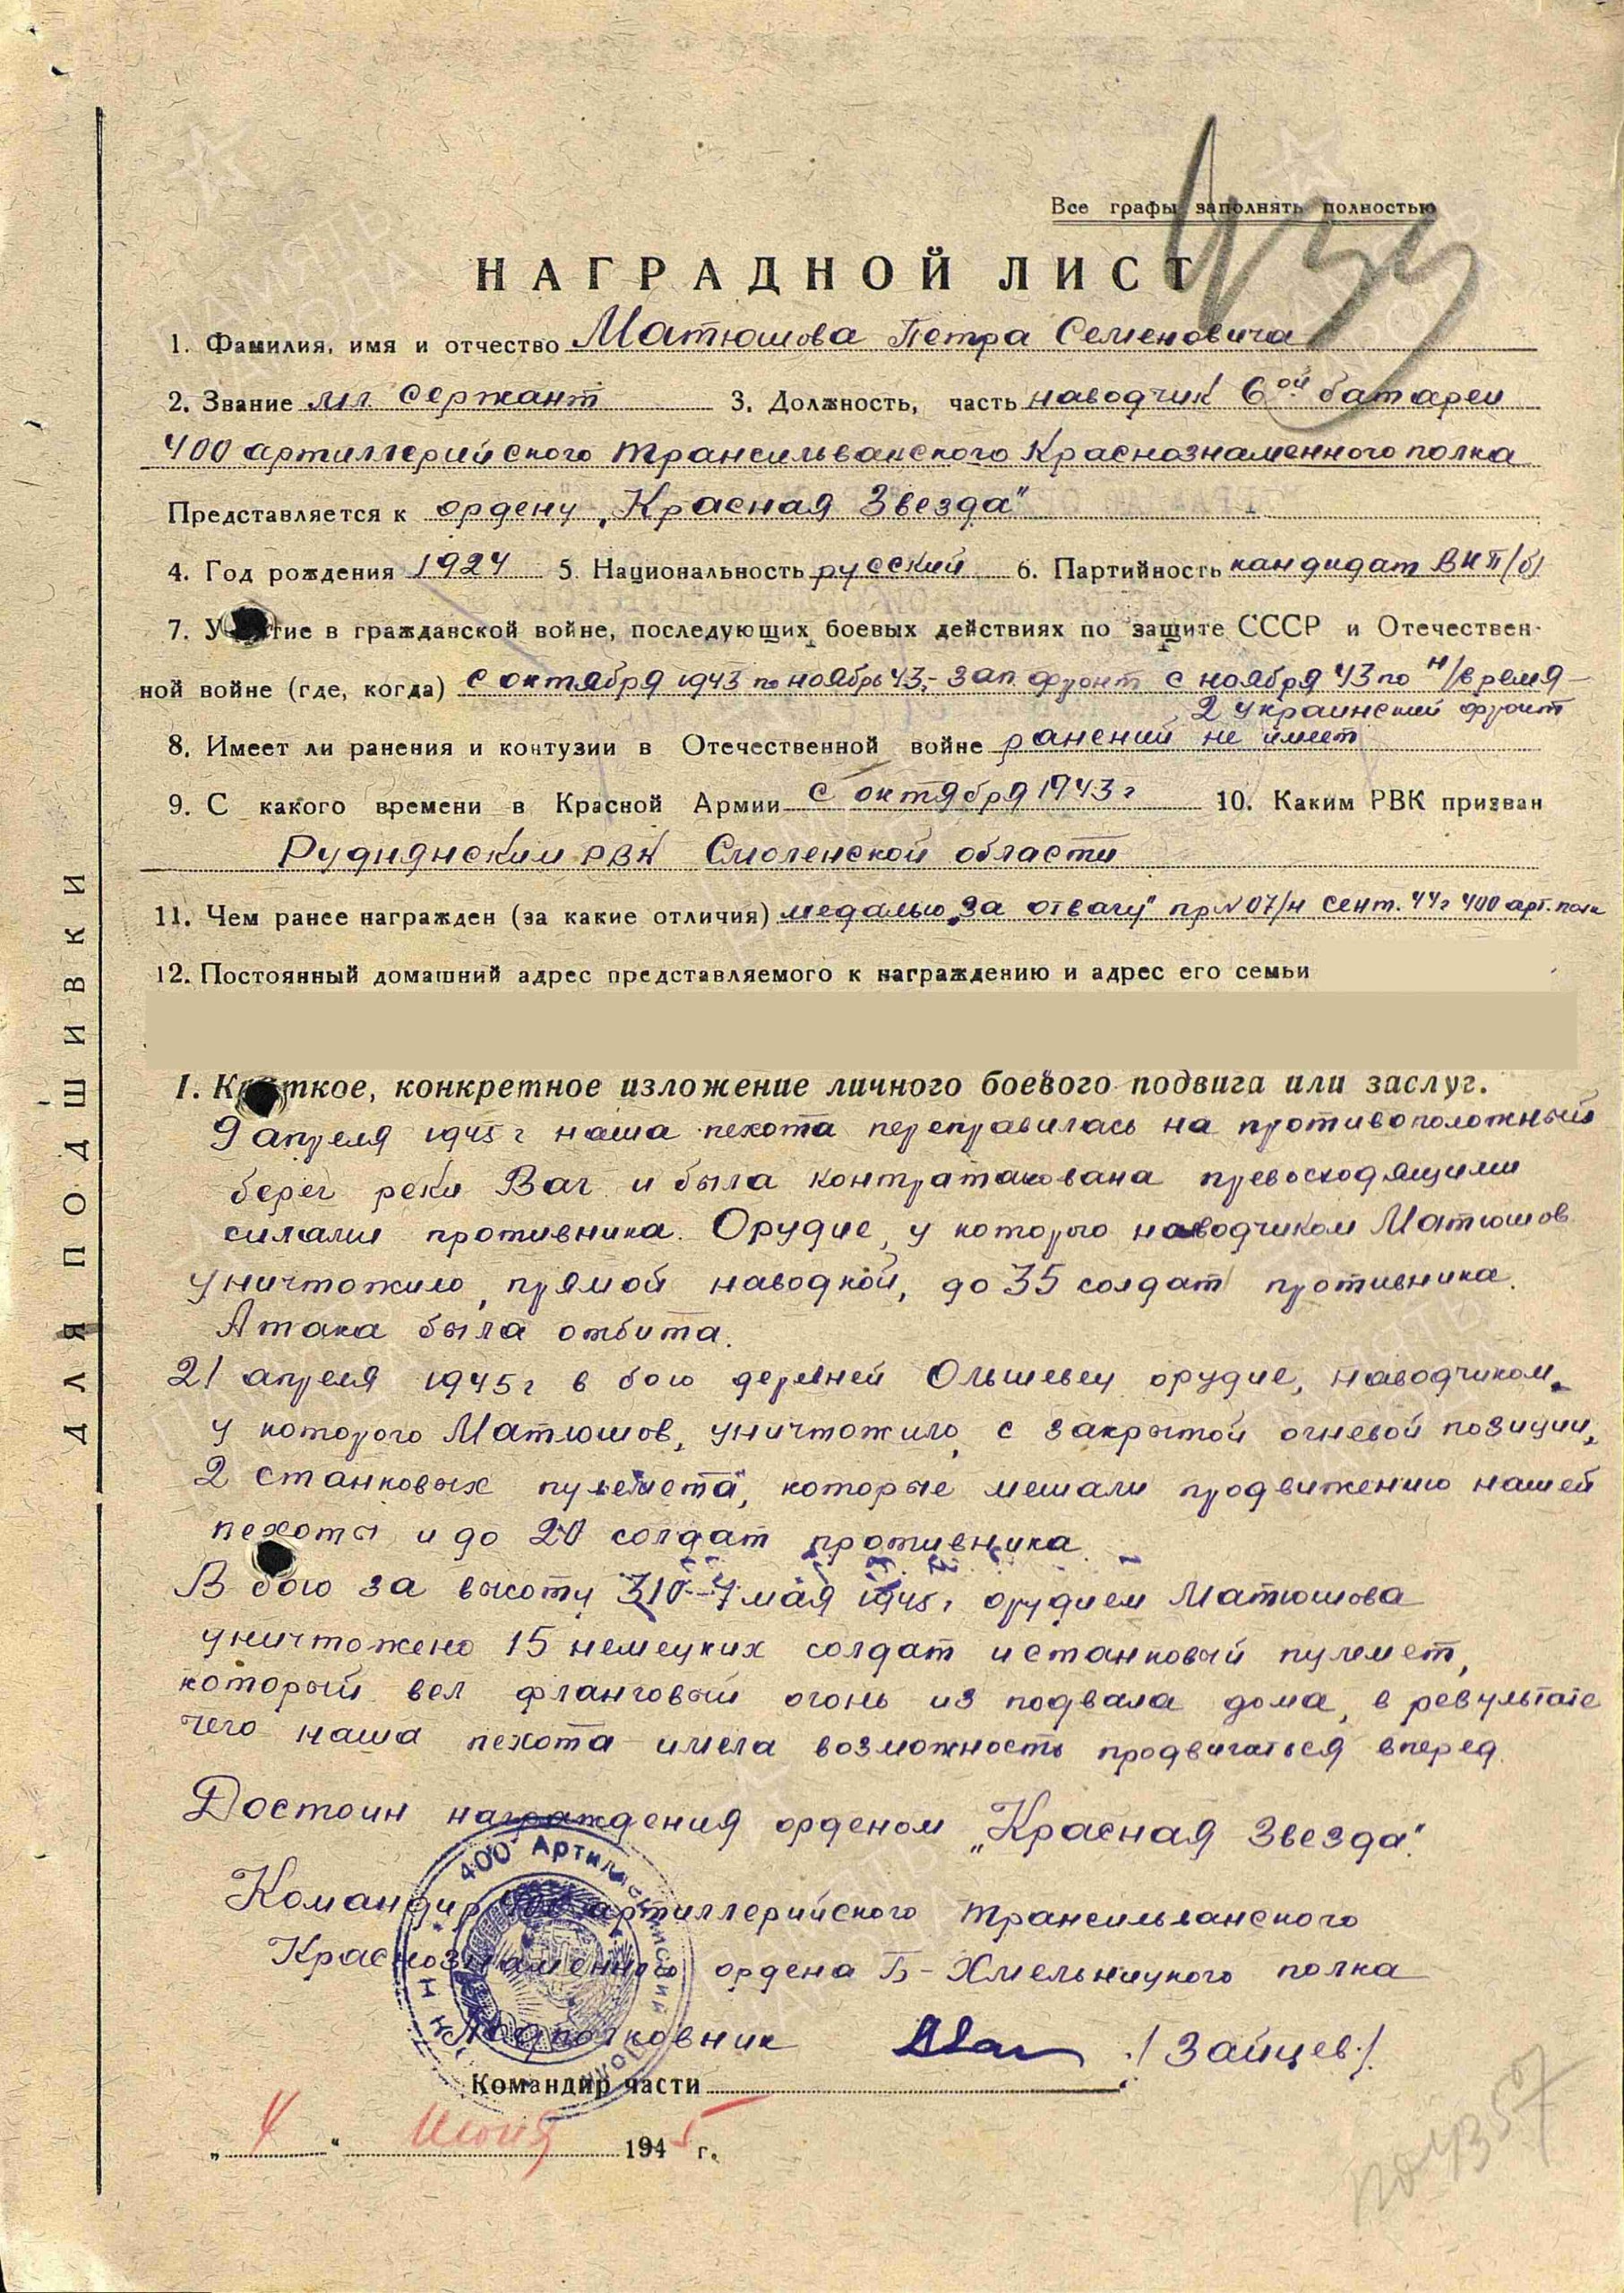 Все графы заполнять полностью
НАГРАДНОЙ ЛИСТ
1. Фамилия, имя и отчество Матюшова Петра Семеновича
2. Звание мл. сержант 3. Должность, часть наводчик 6ой батареи
400 артиллерийского трансильванского Краснознаменного полка
Представляется к ордену „Красная Звезда"
4. Год рождения 1924 5. Национальность русский 6. Партийность кандидат ВКП/б/
7. Участие в гражданской войне, последующих боевых действиях по защите СССР и Отечествен-
ной войне (где, когда) с октября 1943 по ноябрь 43,- Зап. фронт с ноября 43 по н/время -
2 украинский фронт
8. Имеет ли ранения и контузии в Отечественной войне ранений не имеет
9. С какого времени в Красной Армии с октября 1943 г 10. Каким РВК призван
Руднянским РВК Смоленской области
11. Чем ранее награжден (за какие отличия) медалью „За отвагу" пр N 07/н сент. 44г 400 арт. полк
12. Постоянный домашний адрес представляемого к награждению и адрес его семьи
I. Краткое, конкретное изложение личного боевого подвига или заслуг.
9 апреля 1945 г наша пехота переправилась на противоположный
берег реки Ваг и была контратакована превосходящими
силами противника. Орудие, у которого наводчиком Матюшов
уничтожило, прямой наводкой, до 35 солдат противника.
Атака была отбита.
21 апреля 1945 г в бою деревней Ольшевец орудие, наводчиком
у которого Матюшов, уничтожило, с закрытой огневой позиции,
2 становых пулемета, которые мешали продвижению нашей
пехоты и до 20 солдат противника.
В бою за высоту 310 - 7 мая 1945 г орудием Матюшова
уничтожено 15 немецких солдат и станковый пулемет,
который вел фланговый огонь из подвала дома, в результате
чего наша пехота имела возможность продвигаться вперед.
Достоин награждения орденом „Красная Звезда".
Командир 400 артиллерийского трансильванского
Краснознаменного ордена Б-Хмельницкого полка
Подполковник /Зайцев/.
Командир части
„4" июня 1945 г.
ДЛЯ ПОДШИВКИ
400 Артиллерийский полк